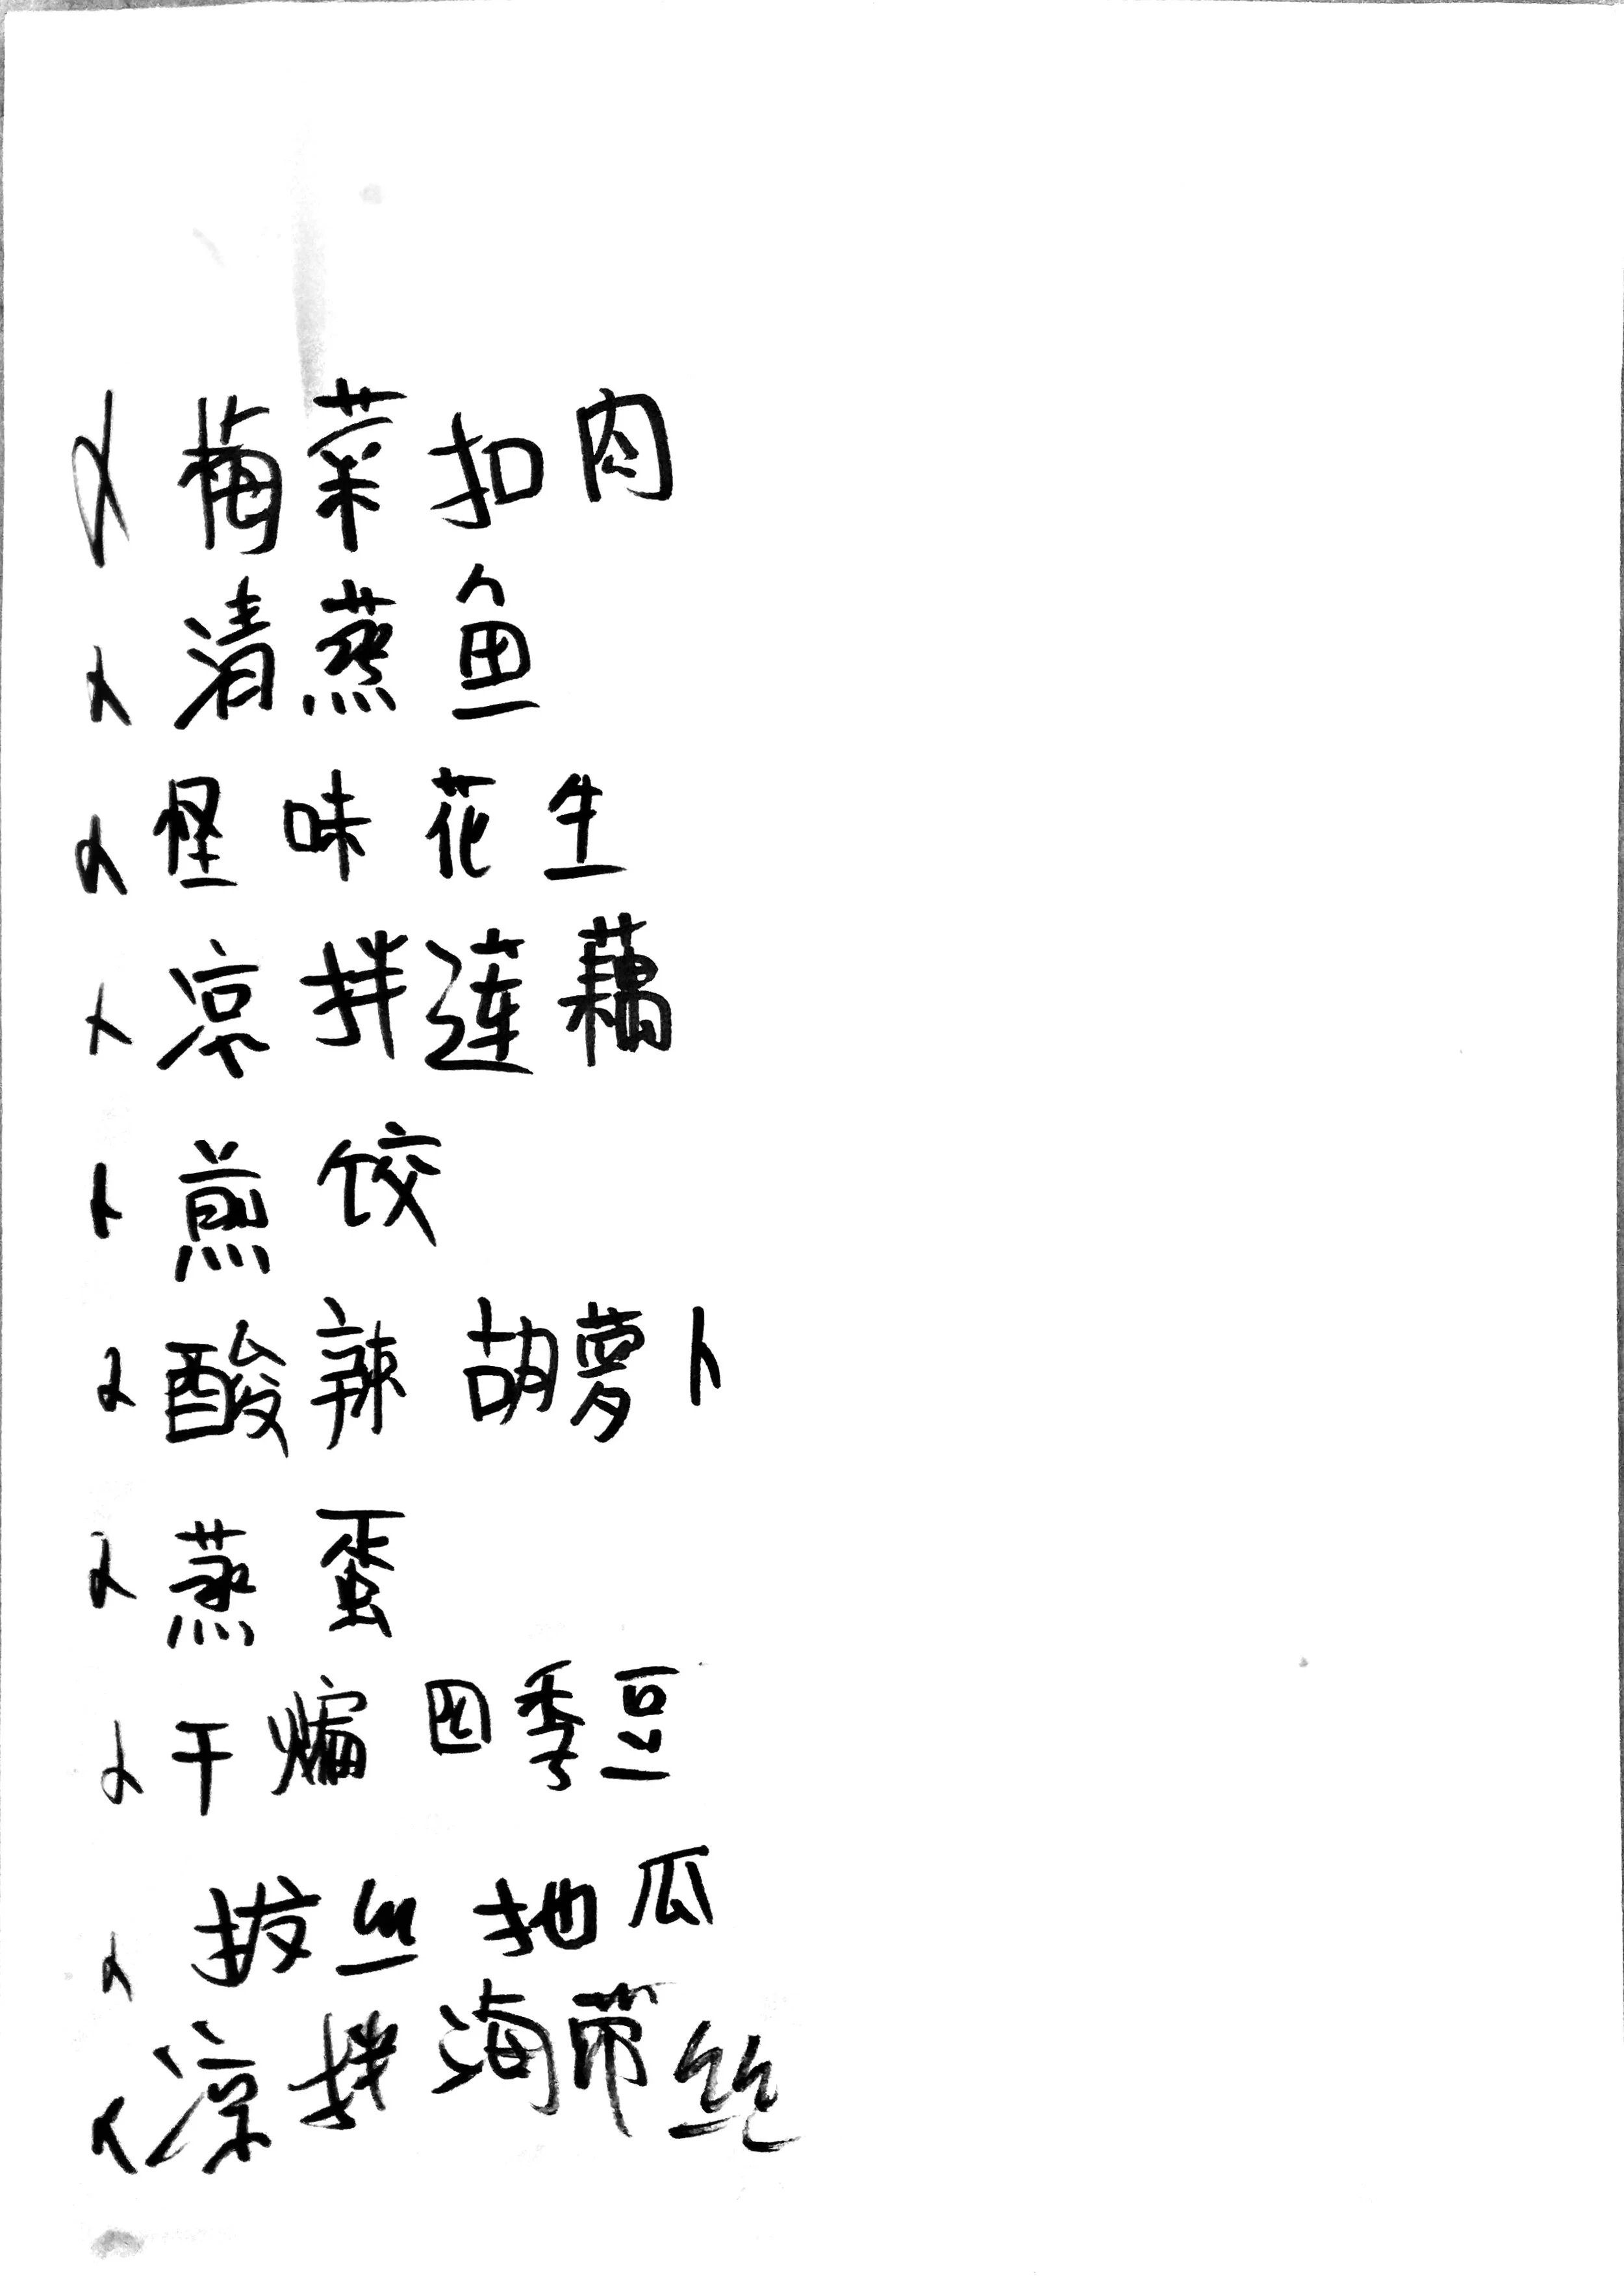 梅菜扣肉
清蒸鱼
怪味花生
凉拌莲藕
煎饺
酸辣胡萝卜
蒸蛋
干煸四季豆
拔丝地瓜
凉拌海带丝